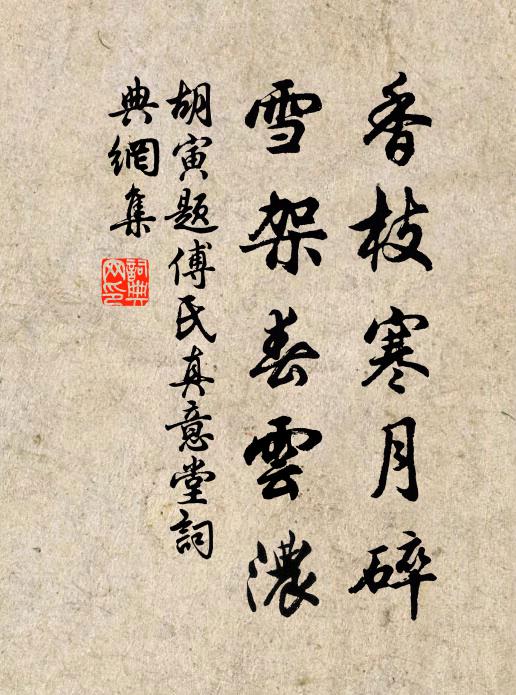 香枝寒月碎
雪架春雲濃
胡寅题傅氏真意堂詞
典網集
詞典網印